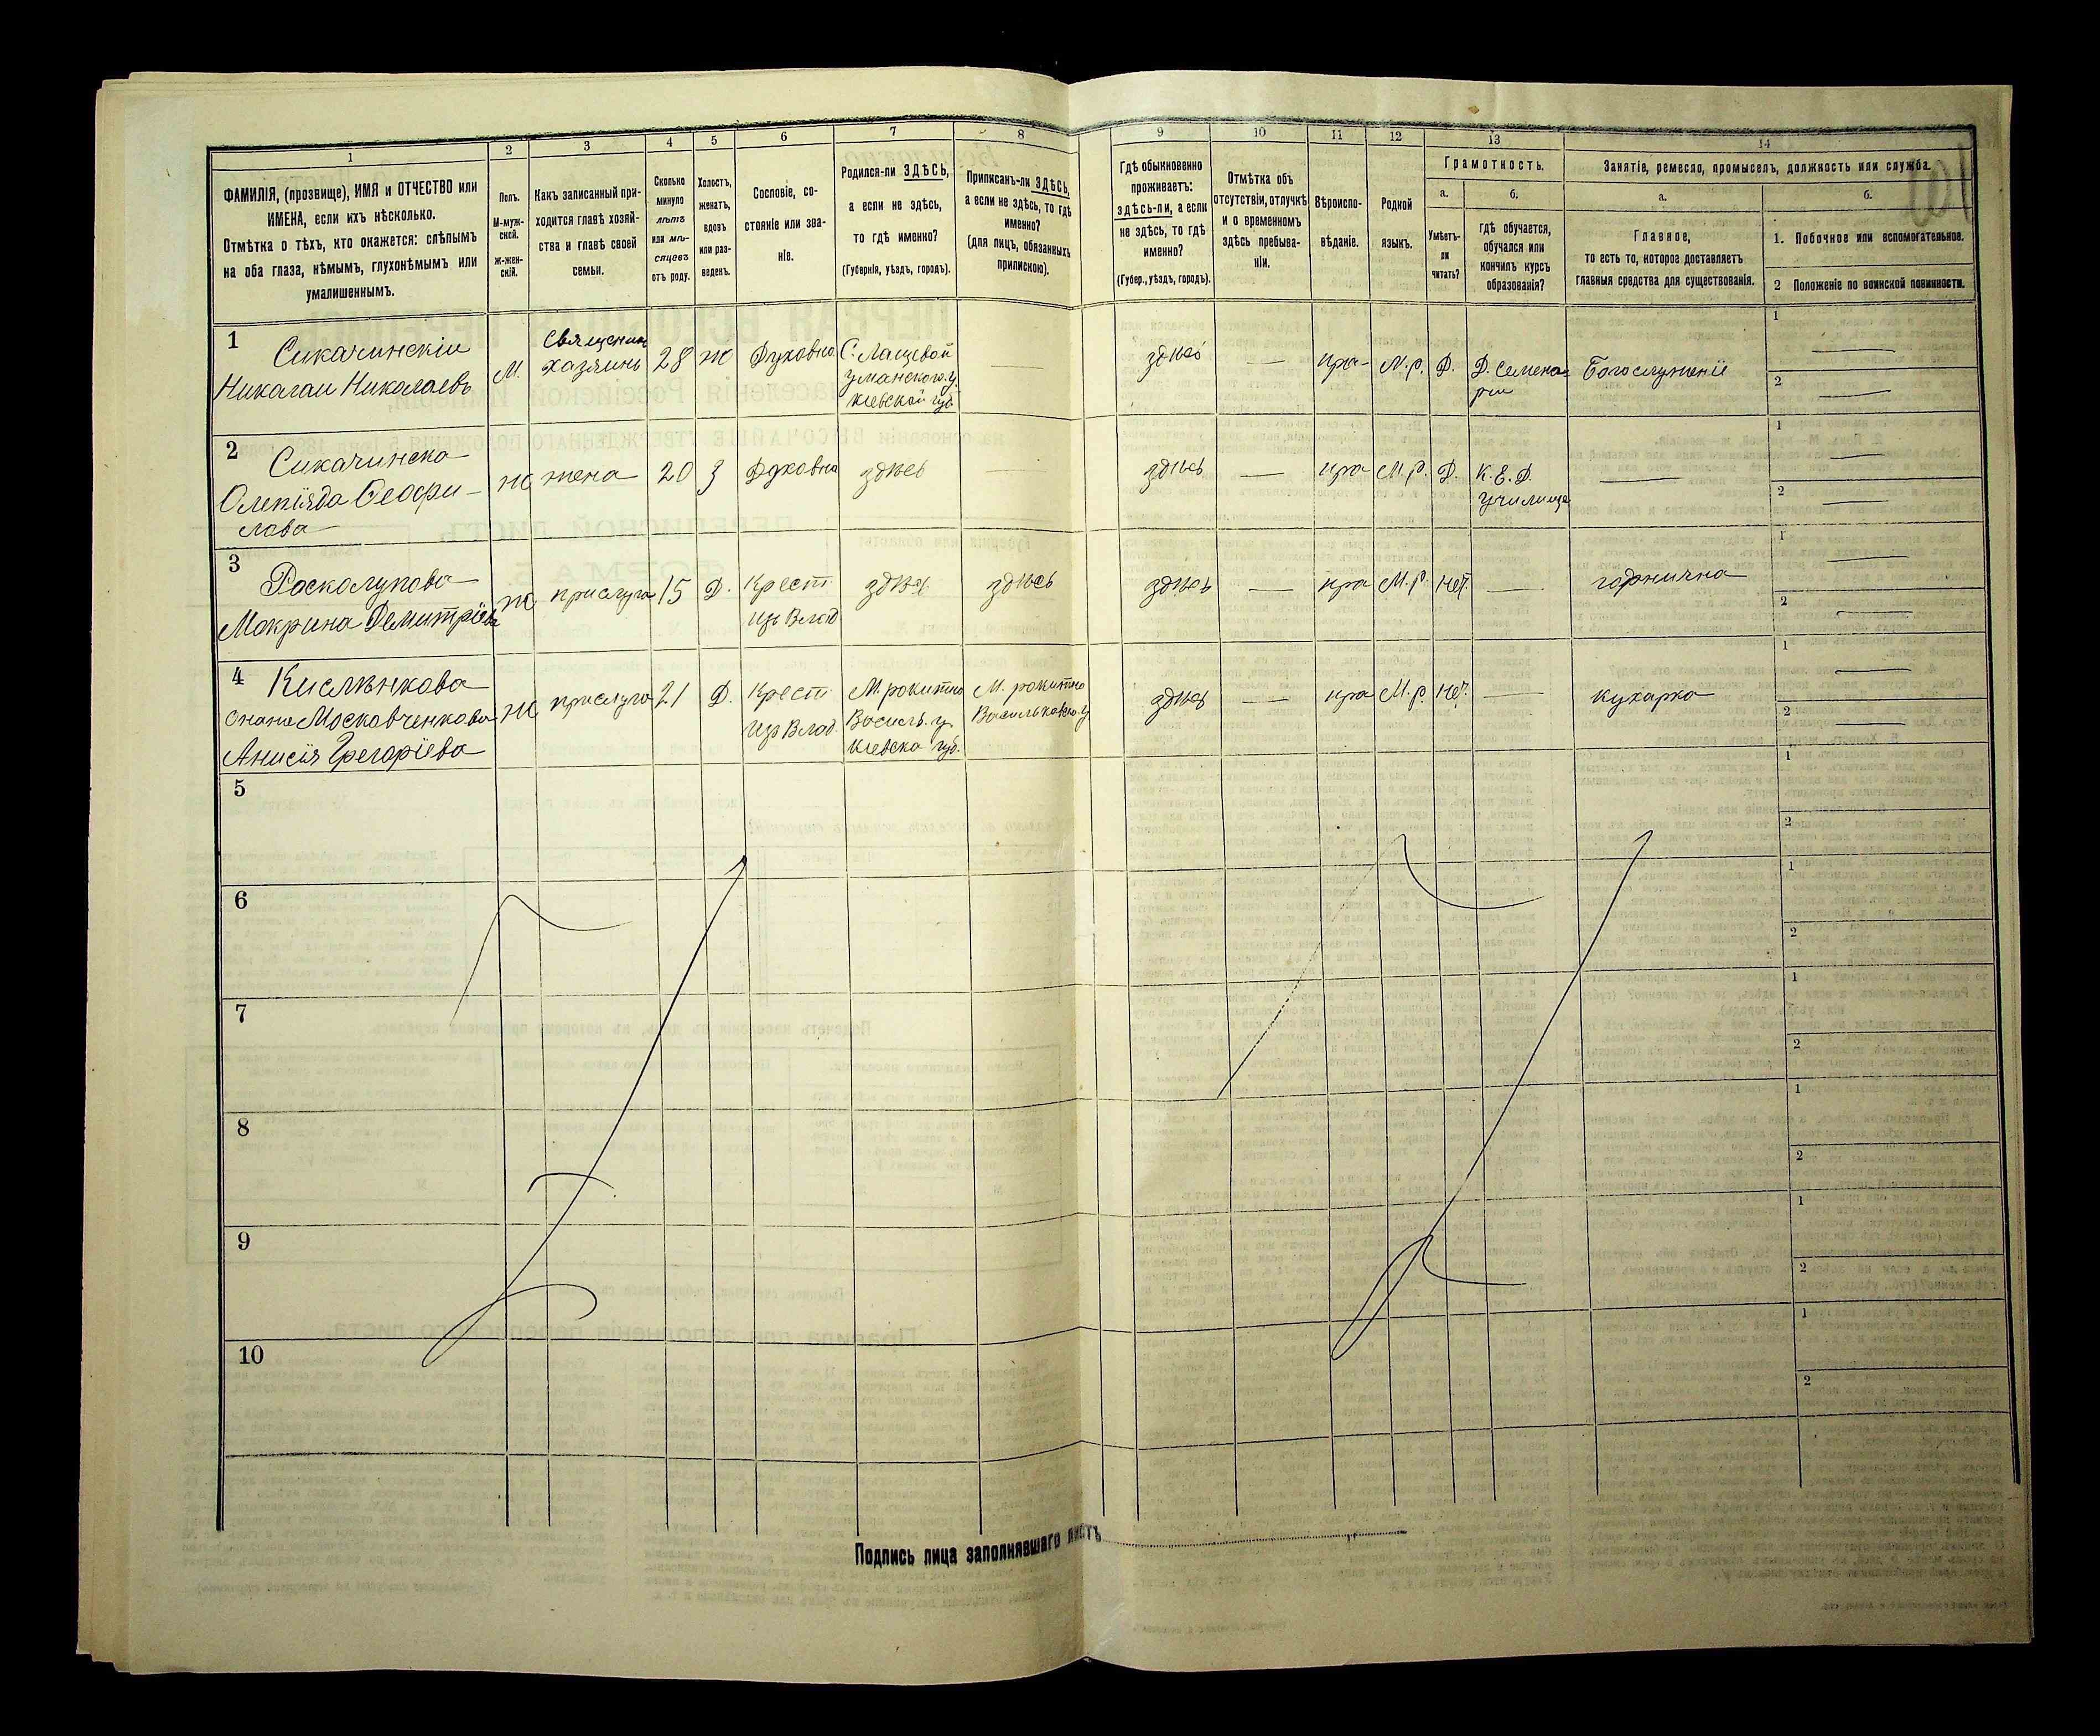 1 2 3 4 5 6 7 8 9 10 11 12 13 14
ФАМИЛІЯ, (прозвище), ИМЯ и ОТЧЕСТВО или
ИМЕНА, если ихъ нѣсколько.
Отмѣтка о тѣхъ, кто окажется: слѣпымъ
на оба глаза, нѣмымъ, глухонѣмымъ или
умалишеннымъ.
Полъ.
М-муж-
ской.
ж-жен-
скій.
Какъ записанный при-
ходится главѣ хозяй-
ства и главѣ своей
семьи.
Сколько
минуло
лѣтъ
или мѣ-
сяцевъ
отъ роду.
Холостъ,
женатъ,
вдовъ
или раз-
веденъ.
Сословіе, со-
стояніе или зва-
ніе.
Родился-ли ЗДѢСЬ,
а если не здѣсь,
то гдѣ именно?
(Губернія, уѣздъ, городъ).
Приписанъ-ли ЗДѢСЬ,
а если не здѣсь, то гдѣ
именно?
(для лицъ, обязанныхъ
припискою).
Гдѣ обыкновенно
проживаетъ:
здѣсь-ли, а если
не здѣсь, то гдѣ
именно?
(Губер., уѣздъ, городъ).
Отмѣтка объ
отсутствіи, отлучкѣ
и о временномъ
здѣсь пребыва-
ніи.
Вѣроиспо-
вѣданіе.
Родной
языкъ.
Грамотность.
а.
Умѣетъ-
ли
читать?
б.
гдѣ обучается,
обучался или
кончилъ курсъ
образованія?
Занятіе, ремесло, промыселъ, должность или служба.
а.
Главное,
то есть то, которое доставляетъ
главныя средства для существованія.
б.
1. Побочное или вспомогательное.
2 Положеніе по воинской повинности.
1 Сикачинскіи
Николаи Николаевъ
М.
Священик
Хазяинъ
28 ж Духовно
С. Лащевой
Уманского у.
Кіевской губ
здѣсь — пра- М.р. Д.
Д. Семена-
рии
Богослуженіе
1 —
2 —
2 Сикачинско
Олепіяда Феофи-
лова
ж жена 20 З Духовно здѣсь — здѣсь — пра М.р. Д.
К. Е. Д.
училище
—
1 —
2 —
3 Росколупова
Мокрина Демитріева
ж прислуга 15 Д.
Крест
Из Влад
здѣсь здѣсь здѣсь — пра М.р. нет. — горнична
1 —
2 —
4 Кислѣнкова
онаже Московченкова
Анисія Грегоріева
ж прислуга 21 Д.
Крест
Из Влад.
М. рокитно
Васильк. у.
Кіевска губ.
М. рокитно
Васильковско. у
здѣсь — пра М.р. нет. — кухарка
1 —
2 —
5
1
2
6
1
2
7
1
2
8
1
2
9
1
2
10
1
2
Подпись лица заполнявшаго листъ